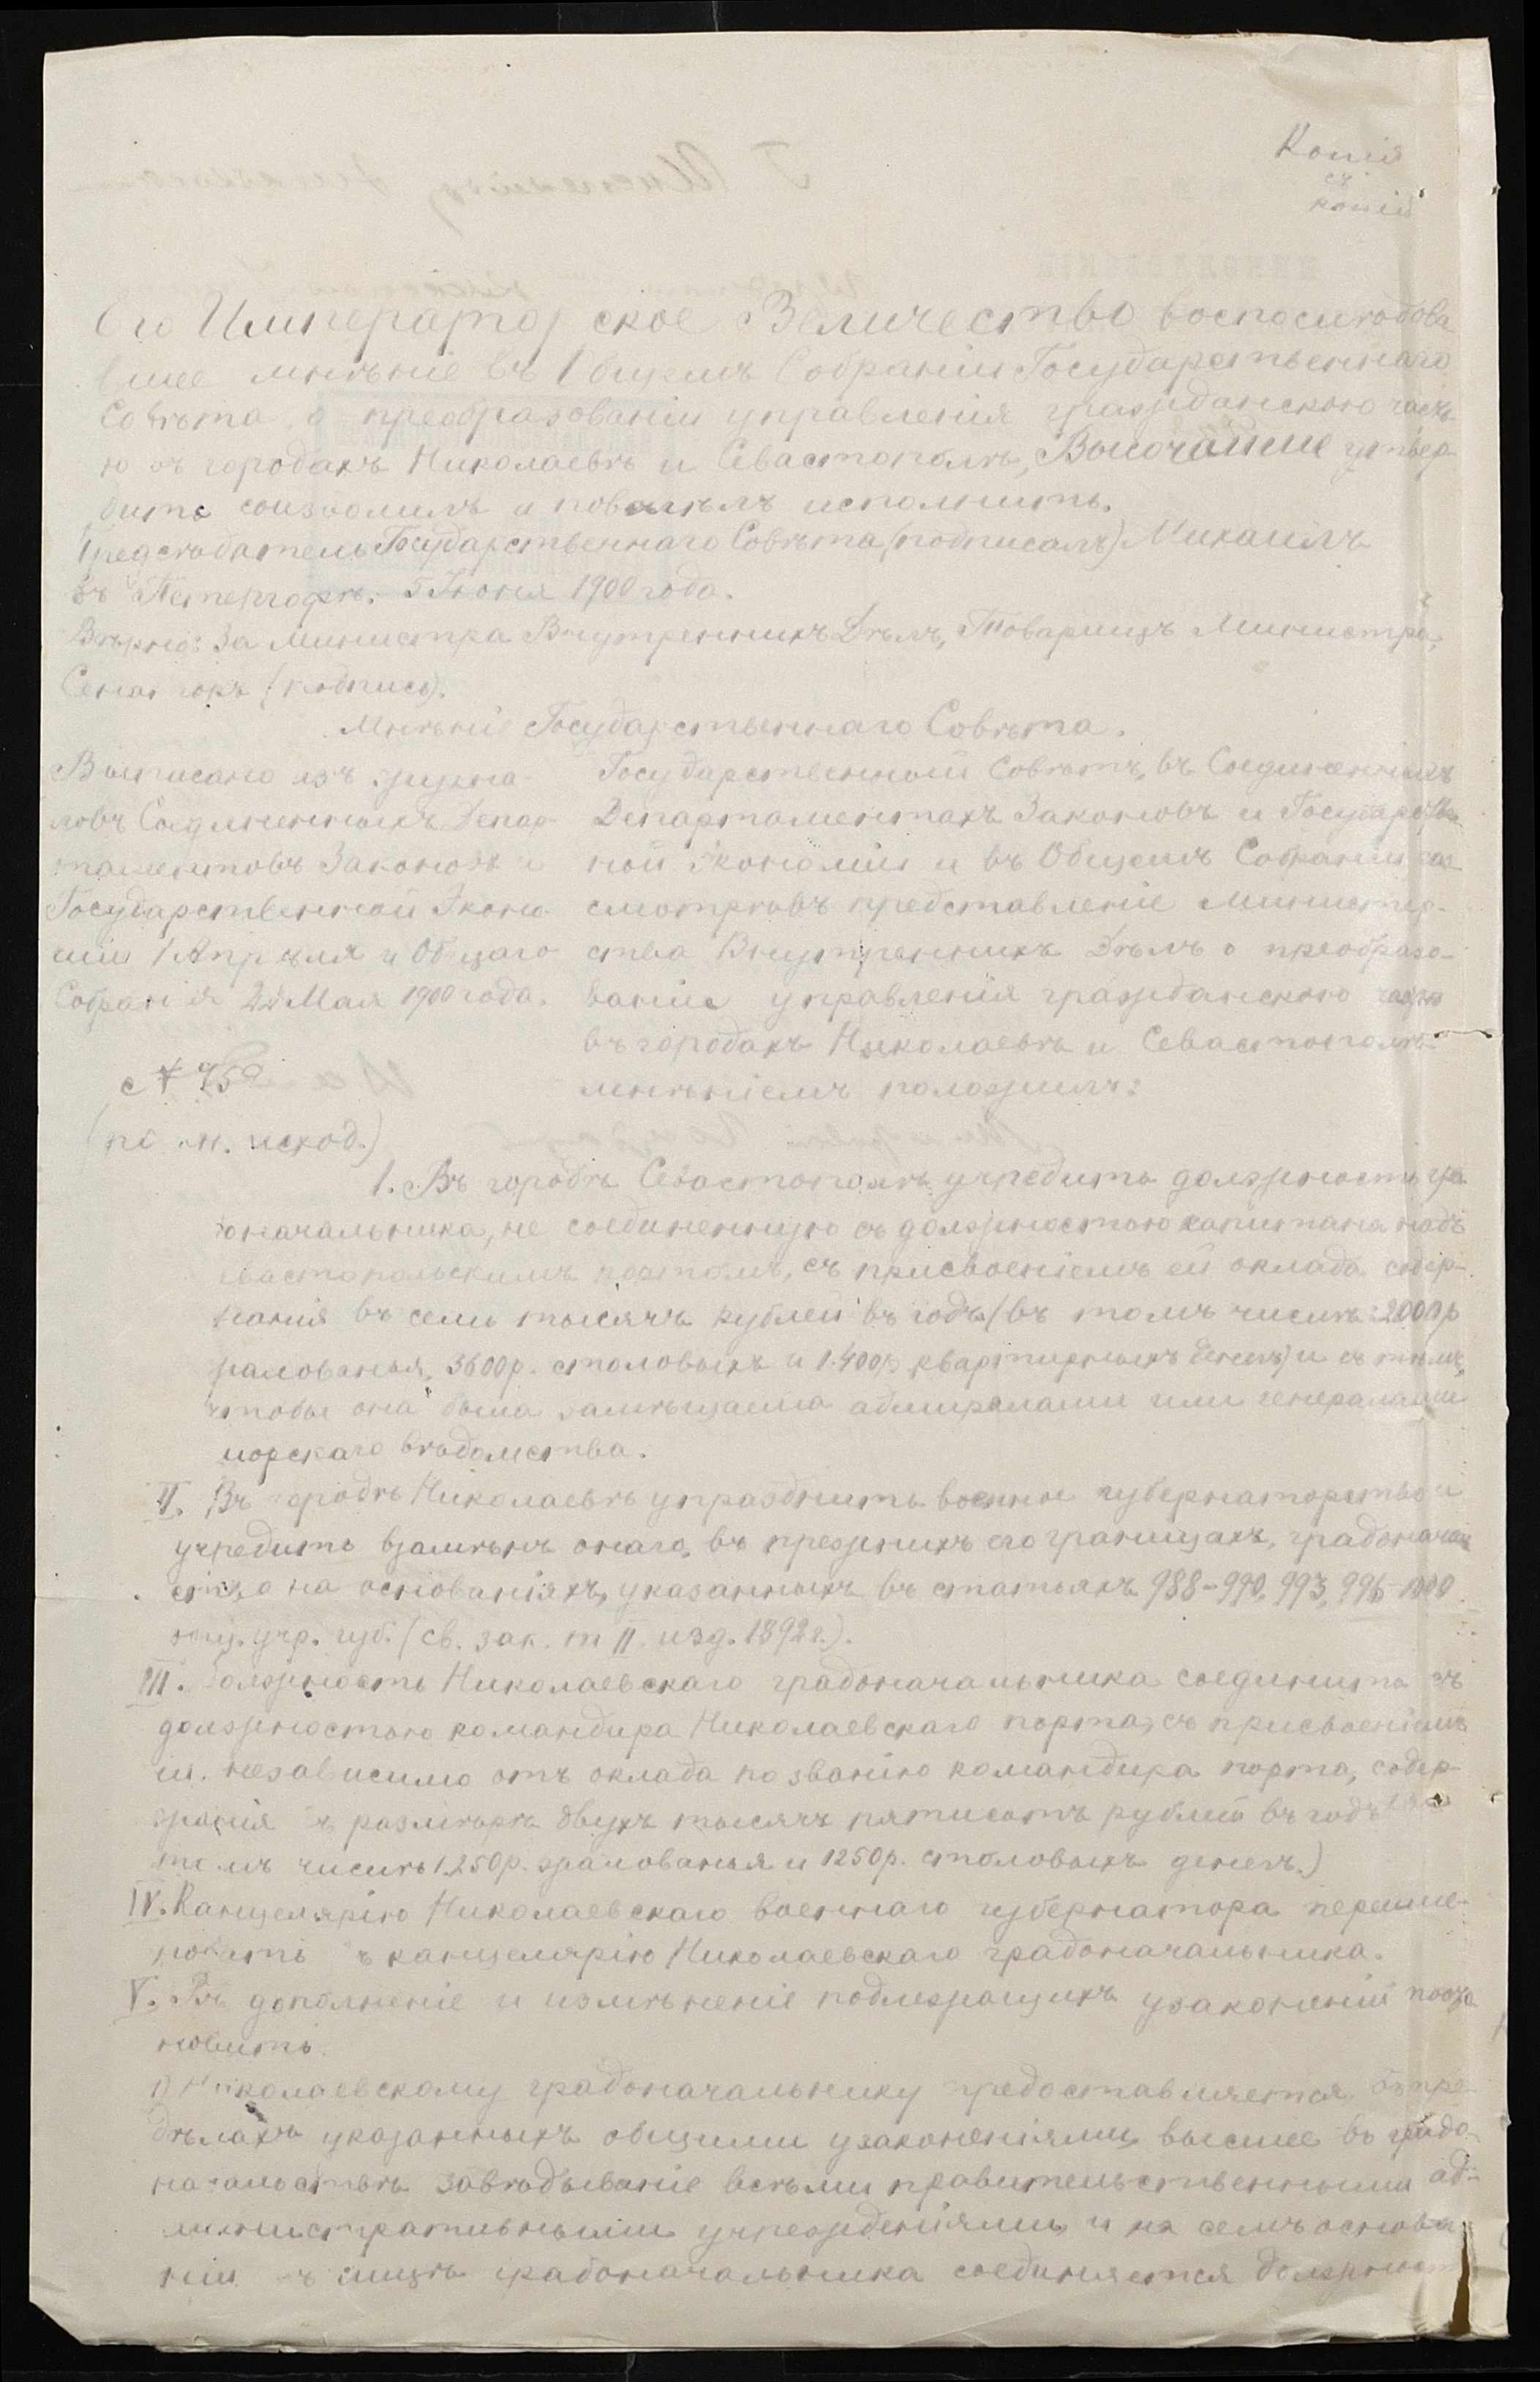 Копія
съ
копіи
Его Императорское Величество воспослѣдова
вшее мнѣніе въ Общемъ Собраніи Государственнаго
Совѣта, о преобразованіи управленія гражданскою част
ю въ городахъ Николаевѣ и Севастополѣ, Высочайше утвер
дить соизволилъ и повелѣлъ исполнить.
Предсѣдатель Государственнаго Совѣта (подписалъ) Михаилъ
въ Петергофѣ. 5 Іюня 1900 года.
Вѣрно: За Министра Внутреннихъ Дѣлъ, Товарищъ Министра,
Сенаторъ (подпись).
Мнѣніе Государственнаго Совѣта.
Выписано изъ журна-
ловъ Соединенныхъ Депар-
таментовъ Законовъ и
Государственной Эконо-
міи 1 Апрѣля и Общаго
Собранія 22 Мая 1900 года.
(по м. исход.)
Государственный Совѣтъ, въ Соединенныхъ
Департаментахъ Законовъ и Государствен
ной Экономіи и въ Общемъ Собраніи раз
смотрѣвъ представленіе Министер-
ства Внутреннихъ Дѣлъ о преобразо-
ваніи управленія гражданскою частью
въ городахъ Николаевѣ и Севастополѣ
мнѣніемъ положилъ:
1. Въ городѣ Севастополѣ учредить должность гра
доначальника, не соединенную съ должностью капитана надъ
Севастопольскимъ портомъ, съ присвоеніемъ ей оклада содер-
жанія въ семь тысячъ рублей въ годъ (въ томъ числѣ: 2000 р
жалованья, 3600 р. столовыхъ и 1.400 р. квартирныхъ денегъ) и съ тѣмъ,
чтобы она была замѣщаема адмиралами или генералами
морскаго вѣдомства.
II. Въ городѣ Николаевѣ упразднить военное губернаторство и
учредить взамѣнъ онаго, въ прежнихъ его границахъ, градоначаль
ство на основаніяхъ, указанныхъ въ статьяхъ 988-990, 993, 996-1000
общ. учр. губ. (св. зак. т II. изд. 1892 г.).
III. Должность Николаевскаго градоначальника соединить съ
должностью командира Николаевскаго порта, съ присвоеніемъ
ей, независимо отъ оклада по званію командира порта, содер-
жанія въ размѣрѣ двухъ тысячъ пятисотъ рублей въ годъ (въ
томъ числѣ 1.250 р. жалованья и 1250 р. столовыхъ денегъ.)
IV. Канцелярію Николаевскаго военнаго губернатора переиме-
новать въ канцелярію Николаевскаго градоначальника.
V. Въ дополненіе и измѣненіе подлежащихъ узаконеній поста
новить:
1) Николаевскому градоначальнику предоставляется въ пре-
дѣлахъ указанныхъ общими узаконеніями, высшее въ градо-
начальствѣ завѣдываніе всѣми правительственными ад-
министративными учрежденіями и на семъ основа
ніи въ лицѣ градоначальника соединяется должность